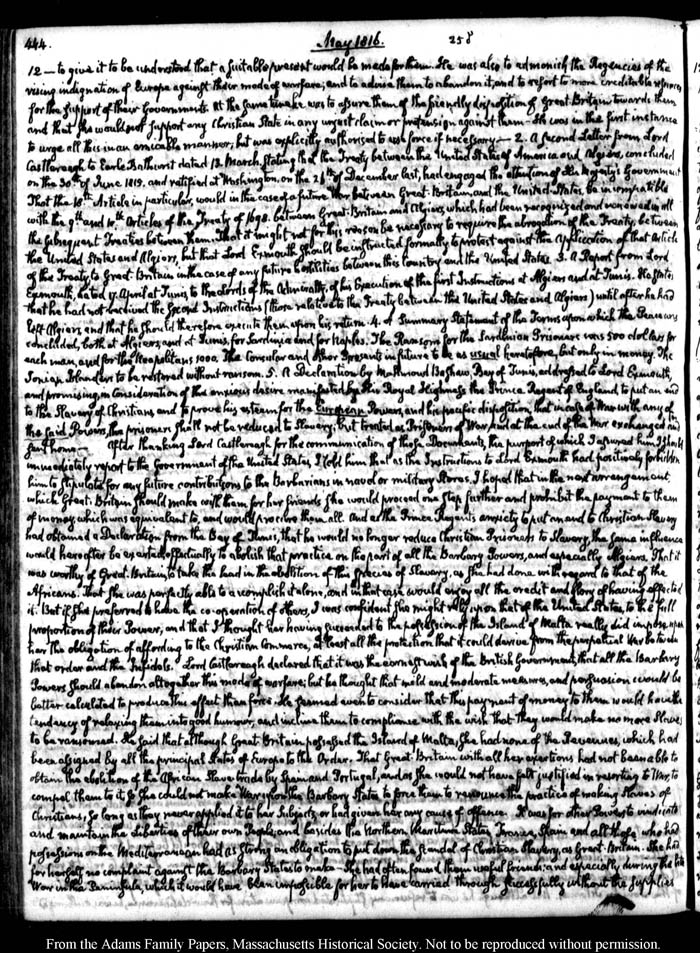 444.
May 1816.
258
12 — to give it to be understood that a suitable present would be made for them. He was also to admonish the Regencies of the
rising indignation of Europe against their mode of warfare; and to advise them to abandon it, and to resort to more creditable resources
for the support of their Governments. At the same time he was to assure them of the friendly disposition of Great Britain towards them
and that she would not support any Christian State in any unjust claim or pretension against them. He was in the first instance
to urge all this in an amicable manner; but was explicitly authorised to use force if necessary — 2. A second Letter from Lord
Castlereagh to Earl Bathurst dated 13. March, stating that the Treaty between the United States of America and Algiers, concluded
on the 30th of June 1815, and ratified at Washington, on the 26th of December last, had engaged the attention of His Majesty's Government
That the 18th Article in particular, would in the case of a future War between Great-Britain and the United States, be incompatible
with the 9th and 10th Articles of the Treaty of 1698. between Great-Britain and Algiers, which had been recognized and renewed in all
the subsequent Treaties between them. That it might not for this reason be necessary to require the abrogation of the Treaty between
the United States and Algiers, but that Lord Exmouth should be instructed formally to protest against the application of that Article
of the Treaty to Great Britain in the case of any future hostilities between this Country and the United States. 3. A Report from Lord
Exmouth, dated 17. April at Tunis, to the Lords of the Admiralty, of his Execution of the first Instructions at Algiers and at Tunis. He states
that he had not received the Second Instructions (those relative to the Treaty between the United States and Algiers) until after he had
left Algiers, and that he should therefore execute them upon his return. 4. A Summary Statement of the Terms upon which the Peace was
concluded, both at Algiers, and at Tunis, for Sardinia and for Naples. The Ransom for the Sardinian Prisoners was 500 dollars for
each man, and for the Neapolitans 1000. The Consular and other Presents in future to be as usual heretofore, but only in money. The
Ionian Islanders to be restored without ransom. 5. A Declaration by Mahmoud Bashaw, Bey of Tunis, addressed to Lord Exmouth,
and promising, in Consideration of the anxious desire manifested by His Royal Highness the Prince Regent of England, to put an end
to the Slavery of Christians and to prove his esteem for the European Powers, and his pacific disposition, that in case of War with any of
the said Powers, the prisoners shall not be reduced to Slavery; but treated as Prisoners of War, and at the end of the War exchanged and
sent home — After thanking Lord Castlereagh for the communication of these Documents, the purport of which I assured him I should
immediately report to the Government of the United States, I told him that as the Instructions to Lord Exmouth had positively forbidden
him to stipulate for any future contributions to the Barbarians in naval or military Stores, I hoped that in the next arrangement,
which Great-Britain should make with them for her friends she would proceed one step further and prohibit the payment to them
of money which was equivalent to, and would procure them all. And as the Prince Regent's anxiety to put an end to Christian Slavery
had obtained a Declaration from the Bey of Tunis, that he would no longer reduce Christian Prisoners to Slavery, the same influence
would hereafter be exerted effectually to abolish that practice on the part of all the Barbary Powers, and especially Algiers. That it
was worthy of Great-Britain, to take the lead in the abolition of this species of Slavery, as she had done with regard to that of the
Africans. That she was perfectly able to accomplish it alone, and in that case would enjoy all the credit and glory of having effected
it. But if she preferred to have the co-operation of others, I was confident she might rely upon that of the United States, to the full
proportion of their Power; and that I thought her having succeeded to the possession of the Island of Malta really did impose upon
her the obligation of affording to the Christian Commerce, at least all the protection that it could derive from the perpetual War between
that order and the Infidels. Lord Castlereagh declared that it was the earnest wish of the British Government, that all the Barbary
Powers should abandon altogether this mode of warfare; but he thought that mild and moderate measures, and persuasion would be
better calculated to produce this effect than force. He seemed even to consider that this payment of money to them would have the
tendency of relaxing them into good humour, and incline them to compliance with the wish that they would make no more Slaves
to be ransomed. He said that although Great Britain possessed the Island of Malta, she had none of the Revenues, which had
been assigned by all the principal States of Europe to the Order. That Great-Britain with all her exertions had not been able to
obtain the abolition of the African Slave trade by Spain and Portugal, and as she would not have felt justified in resorting to War, to
compel them to it, so she could not make War upon the Barbary States to force them to renounce the practice of making Slaves of
Christians, so long as they never applied it to her Subjects, or had given her any cause of offence. It was for other Powers to vindicate
and maintain the Liberties of their own People, and besides the Northern Maritime States, France, Spain and all those who had
possessions on the Mediterranean had as strong an obligation to put down the scandal of Christian Slavery, as Great-Britain. She had
for herself, no complaint against the Barbary States to make. She had often found them useful friends; and especially during the late
War in the Peninsula, which it would have been impossible for her to have carried through successfully without the supplies
From the Adams Family Papers, Massachusetts Historical Society. Not to be reproduced without permission.